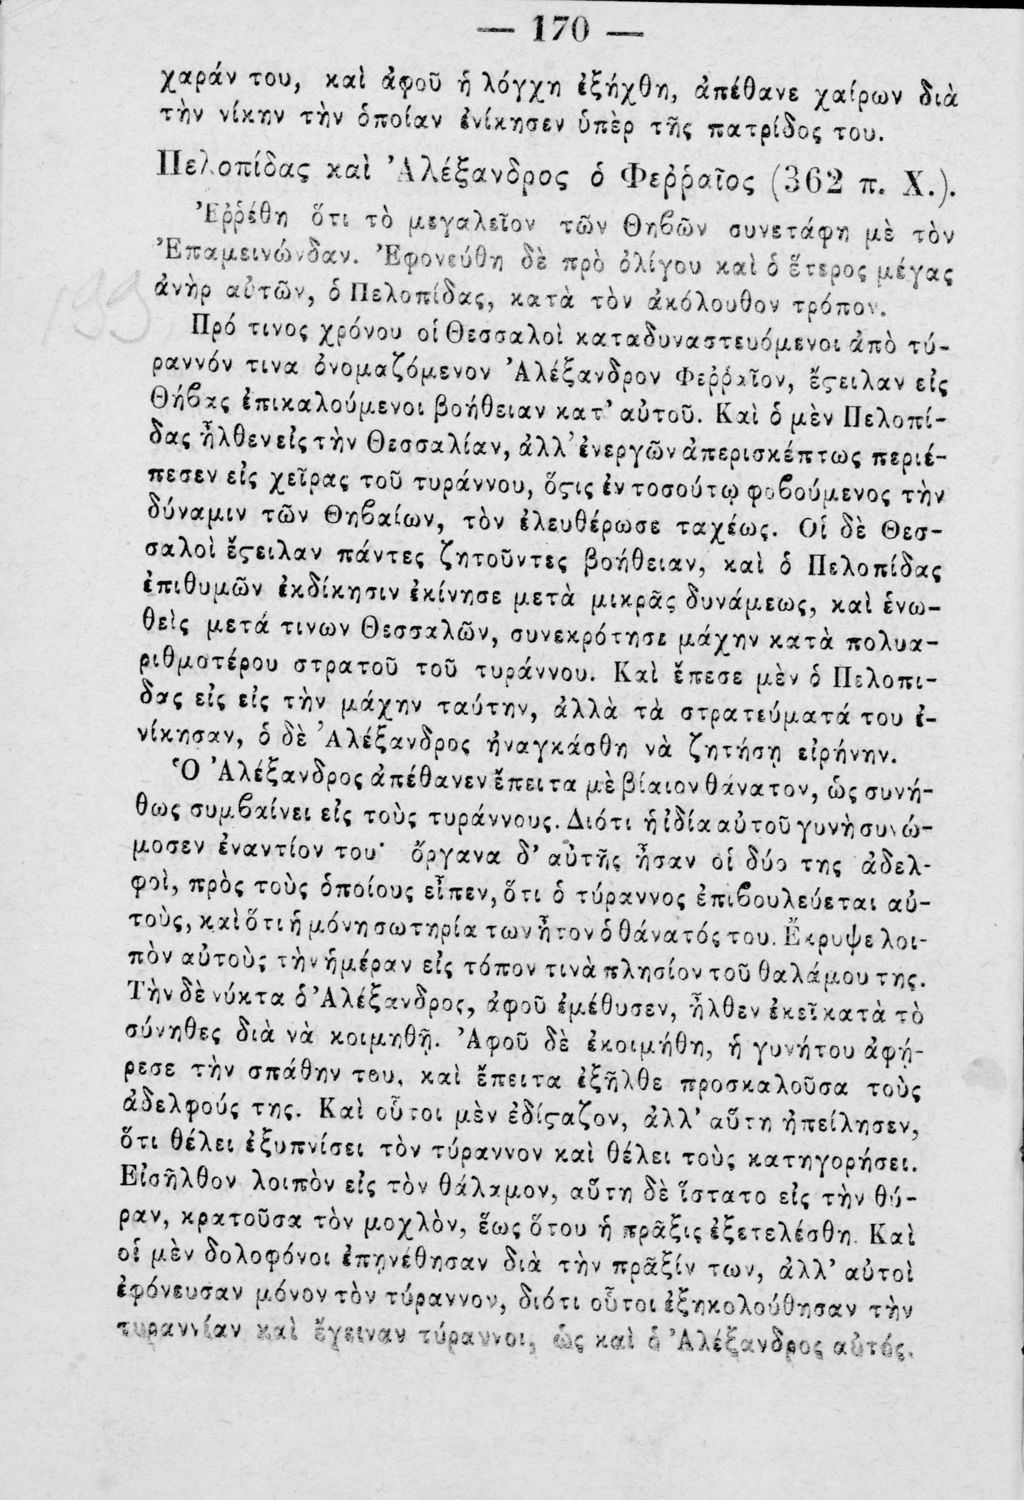 — 170 —
χαράν του, καὶ ἀφοῦ ἡ λόγχη ἐξήχθη, ἀπέθανε χαίρων διὰ
τὴν νίκην τὴν ὁποίαν ἐνίκησεν ὑπὲρ τῆς πατρίδος του.
Πελοπίδας καὶ Ἀλέξανδρος ὁ Φεῤῥαῖος (362 π. Χ.).
Ἐῤῥέθη ὅτι τὸ μεγαλεῖον τῶν Θηβῶν συνετάφη μὲ τὸν
Ἐπαμεινώνδαν. Ἐφονεύθη δὲ πρὸ ὀλίγου καὶ ὁ ἕτερος μέγας
ἀνὴρ αὐτῶν, ὁ Πελοπίδας, κατὰ τὸν ἀκόλουθον τρόπον.
Πρό τινος χρόνου οἱ Θεσσαλοὶ καταδυναστευόμενοι ἀπὸ τύ-
ραννόν τινα ὀνομαζόμενον Ἀλέξανδρον Φεῤῥαῖον, ἔϛειλαν εἰς
Θήβας ἐπικαλούμενοι βοήθειαν κατ' αὐτοῦ. Καὶ ὁ μὲν Πελοπί-
δας ἦλθεν εἰς τὴν Θεσσαλίαν, ἀλλ' ἐνεργῶν ἀπερισκέπτως περιέ-
πεσεν εἰς χεῖρας τοῦ τυράννου, ὅϛις ἐν τοσούτῳ φοβούμενος τὴν
δύναμιν τῶν Θηβαίων, τὸν ἐλευθέρωσε ταχέως. Οἱ δὲ Θεσ-
σαλοὶ ἔϛειλαν πάντες ζητοῦντες βοήθειαν, καὶ ὁ Πελοπίδας
ἐπιθυμῶν ἐκδίκησιν ἐκίνησε μετὰ μικρᾶς δυνάμεως, καὶ ἑνω-
θεὶς μετά τινων Θεσσαλῶν, συνεκρότησε μάχην κατὰ πολυα-
ριθμοτέρου στρατοῦ τοῦ τυράννου. Καὶ ἔπεσε μὲν ὁ Πελοπι-
δας εἰς εἰς τὴν μάχην ταύτην, ἀλλὰ τὰ στρατεύματά του ἐ-
νίκησαν, ὁ δὲ Ἀλέξανδρος ἠναγκάσθη νὰ ζητήσῃ εἰρήνην.
Ὁ Ἀλέξανδρος ἀπέθανεν ἔπειτα μὲ βίαιον θάνατον, ὡς συνή-
θως συμβαίνει εἰς τοὺς τυράννους. Διότι ἡ ἰδία αὐτοῦ γυνὴ συνώ-
μοσεν ἐναντίον του· ὄργανα δ' αὐτῆς ἦσαν οἱ δύο της ἀδελ-
φοὶ, πρὸς τοὺς ὁποίους εἶπεν, ὅτι ὁ τύραννος ἐπιβουλεύεται αὐ-
τοὺς, καὶ ὅτι ἡ μόνη σωτηρία των ἦτον ὁ θάνατός του. Ἔκρυψε λοι-
πὸν αὐτοὺς τὴν ἡμέραν εἰς τόπον τινὰ πλησίον τοῦ θαλάμου της.
Τὴν δὲ νύκτα ὁ Ἀλέξανδρος, ἀφοῦ ἐμέθυσεν, ἦλθεν ἐκεῖ κατὰ τὸ
σύνηθες διὰ νὰ κοιμηθῇ. Ἀφοῦ δὲ ἐκοιμήθη, ἡ γυνή του ἀφῄ-
ρεσε τὴν σπάθην του, καὶ ἔπειτα ἐξῆλθε προσκαλοῦσα τοὺς
ἀδελφούς της. Καὶ οὗτοι μὲν ἐδίϛαζον, ἀλλ' αὕτη ἠπείλησεν,
ὅτι θέλει ἐξυπνίσει τὸν τύραννον καὶ θέλει τοὺς κατηγορήσει.
Εἰσῆλθον λοιπὸν εἰς τὸν θάλαμον, αὕτη δὲ ἵστατο εἰς τὴν θύ-
ραν, κρατοῦσα τὸν μοχλὸν, ἕως ὅτου ἡ πρᾶξις ἐξετελέσθη. Καὶ
οἱ μὲν δολοφόνοι ἐπῃνέθησαν διὰ τὴν πρᾶξίν των, ἀλλ' αὐτοὶ
ἐφόνευσαν μόνον τὸν τύραννον, διότι οὗτοι ἐξηκολούθησαν τὴν
τυραννίαν καὶ ἔγειναν τύραννοι, ὡς καὶ ὁ Ἀλέξανδρος αὐτός.